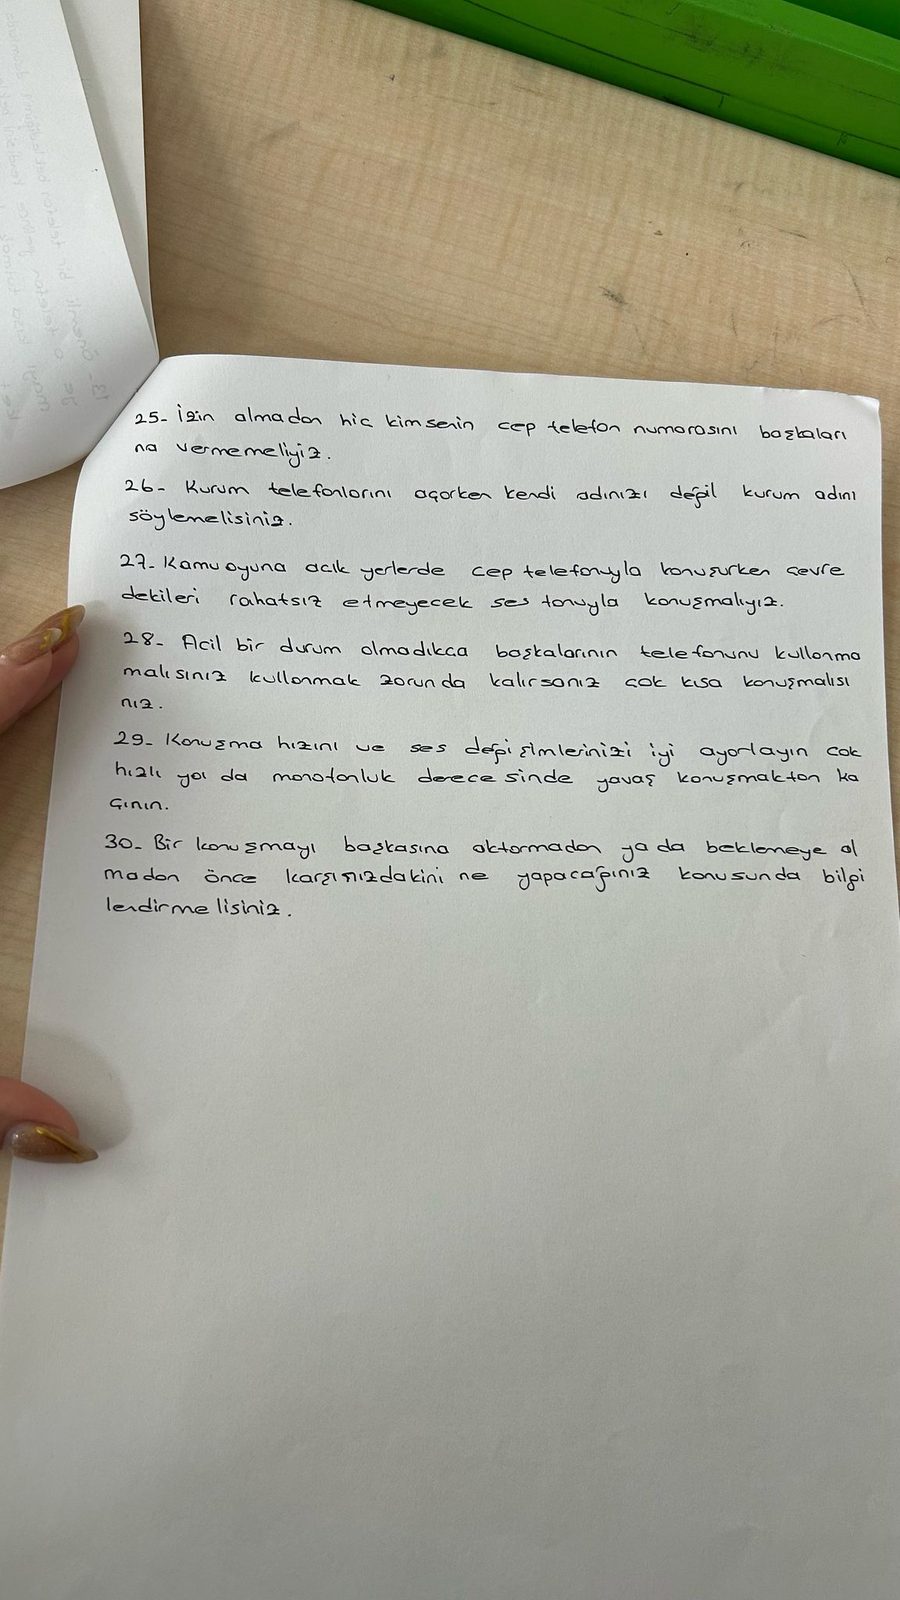 25- İzin almadan hic kimsenin cep telefon numarasını başkaları
na vermemeliyiz.
26- Kurum telefonlarını açarken kendi adınızı değil kurum adını
söylemelisiniz.
27- Kamuoyuna acık yerlerde cep telefonuyla konuşurken cevre
dekileri rahatsız etmeyecek ses tonuyla konuşmalıyız.
28- Acil bir durum olmadıkca başkalarının telefonunu kullanma
malısınız kullanmak zorunda kalırsanız cok kısa konuşmalısı
nız.
29- Konuşma hızını ve ses değişimlerinizi iyi ayarlayın cok
hızlı ya da monotonluk derecesinde yavaş konuşmaktan ka
çının.
30- Bir konuşmayı başkasına aktarmadan ya da beklemeye al
madan önce karşınızdakini ne yapacağınız konusunda bilgi
lendirmelisiniz.